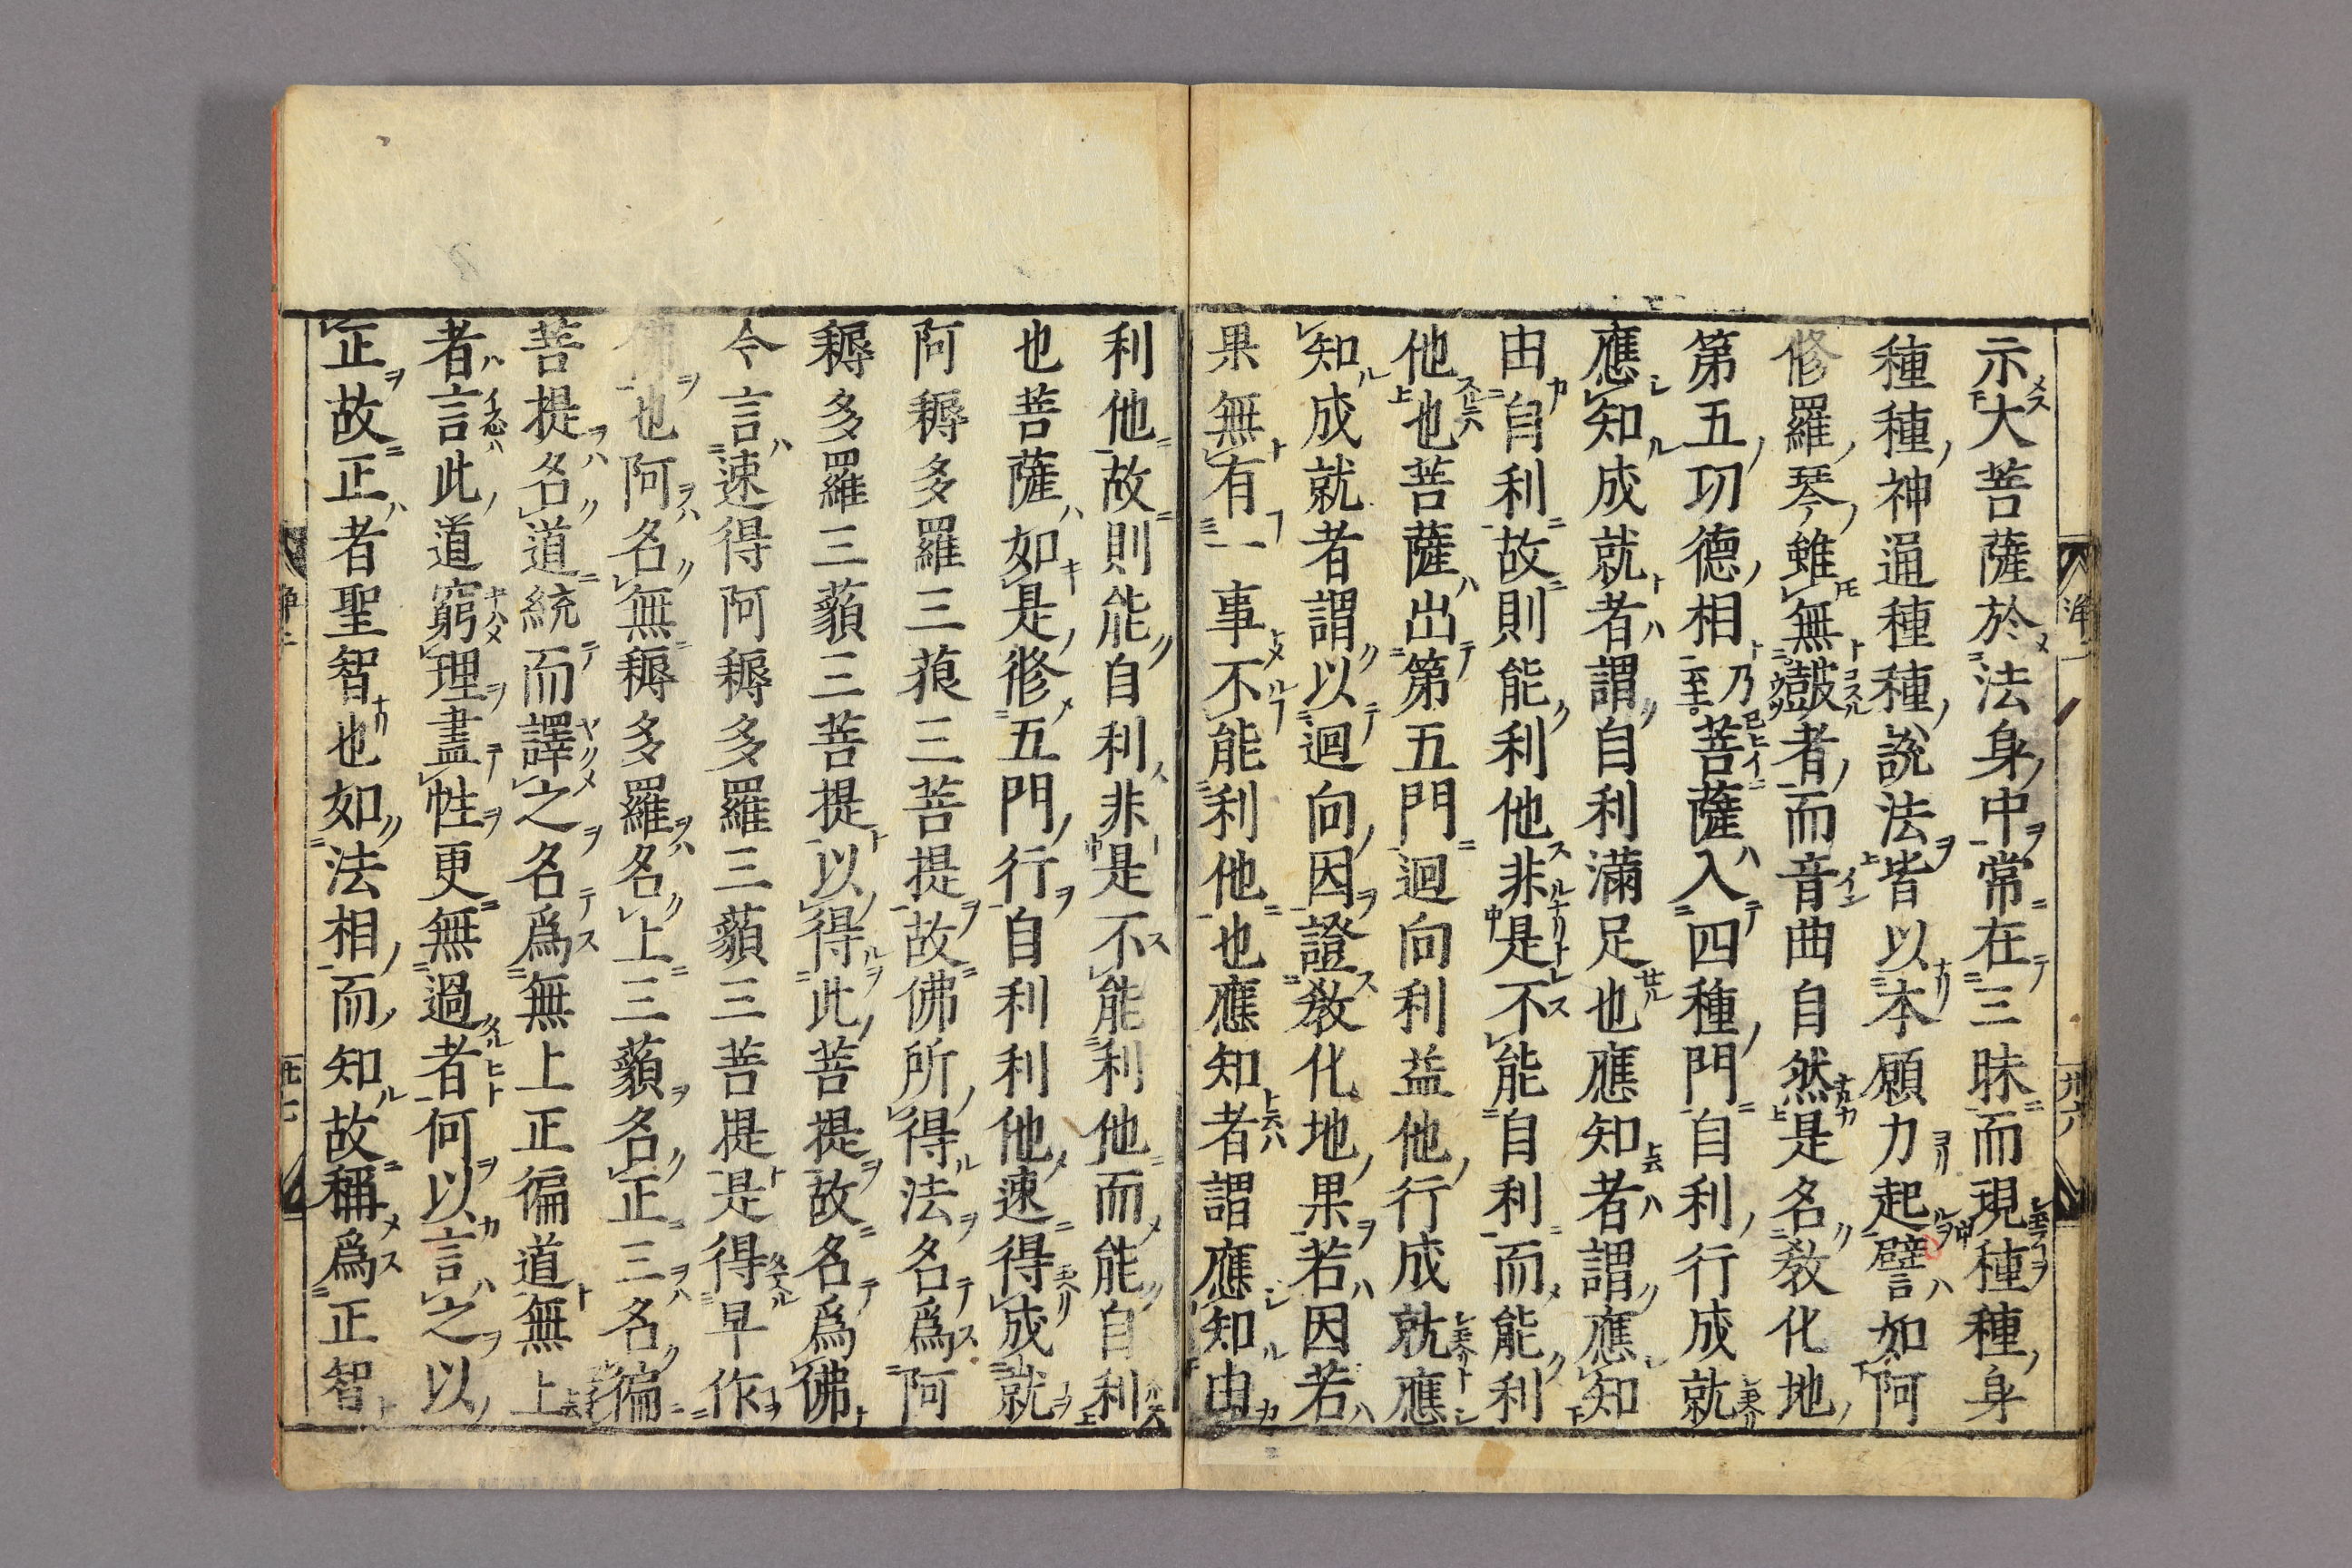 示大菩薩於法身中常在三昧而現種種身
種種神通種種說法皆以本願力起譬如阿
修羅琴雖無鼓者而音曲自然是名教化地
第五功德相乃至菩薩入四種門自利行成就
應知成就者謂自利滿足也應知者謂應知
由自利故則能利他非是不能自利而能利
他也菩薩出第五門迴向利益他行成就應
知成就者謂以迴向因證教化地果若因若
果無有一事不能利他也應知者謂應知由
利他故則能自利非是不能利他而能自利
也菩薩如是修五門行自利利他速得成就
阿耨多羅三藐三菩提故佛所得法名爲阿
耨多羅三藐三菩提以得此菩提故名爲佛
今言速得阿耨多羅三藐三菩提是得早作
佛也阿名無耨多羅名上三藐名正三名徧
菩提名道統而譯之名爲無上正徧道無上
者言此道窮理盡性更無過者何以言之以
正故正者聖智也如法相而知故稱爲正智